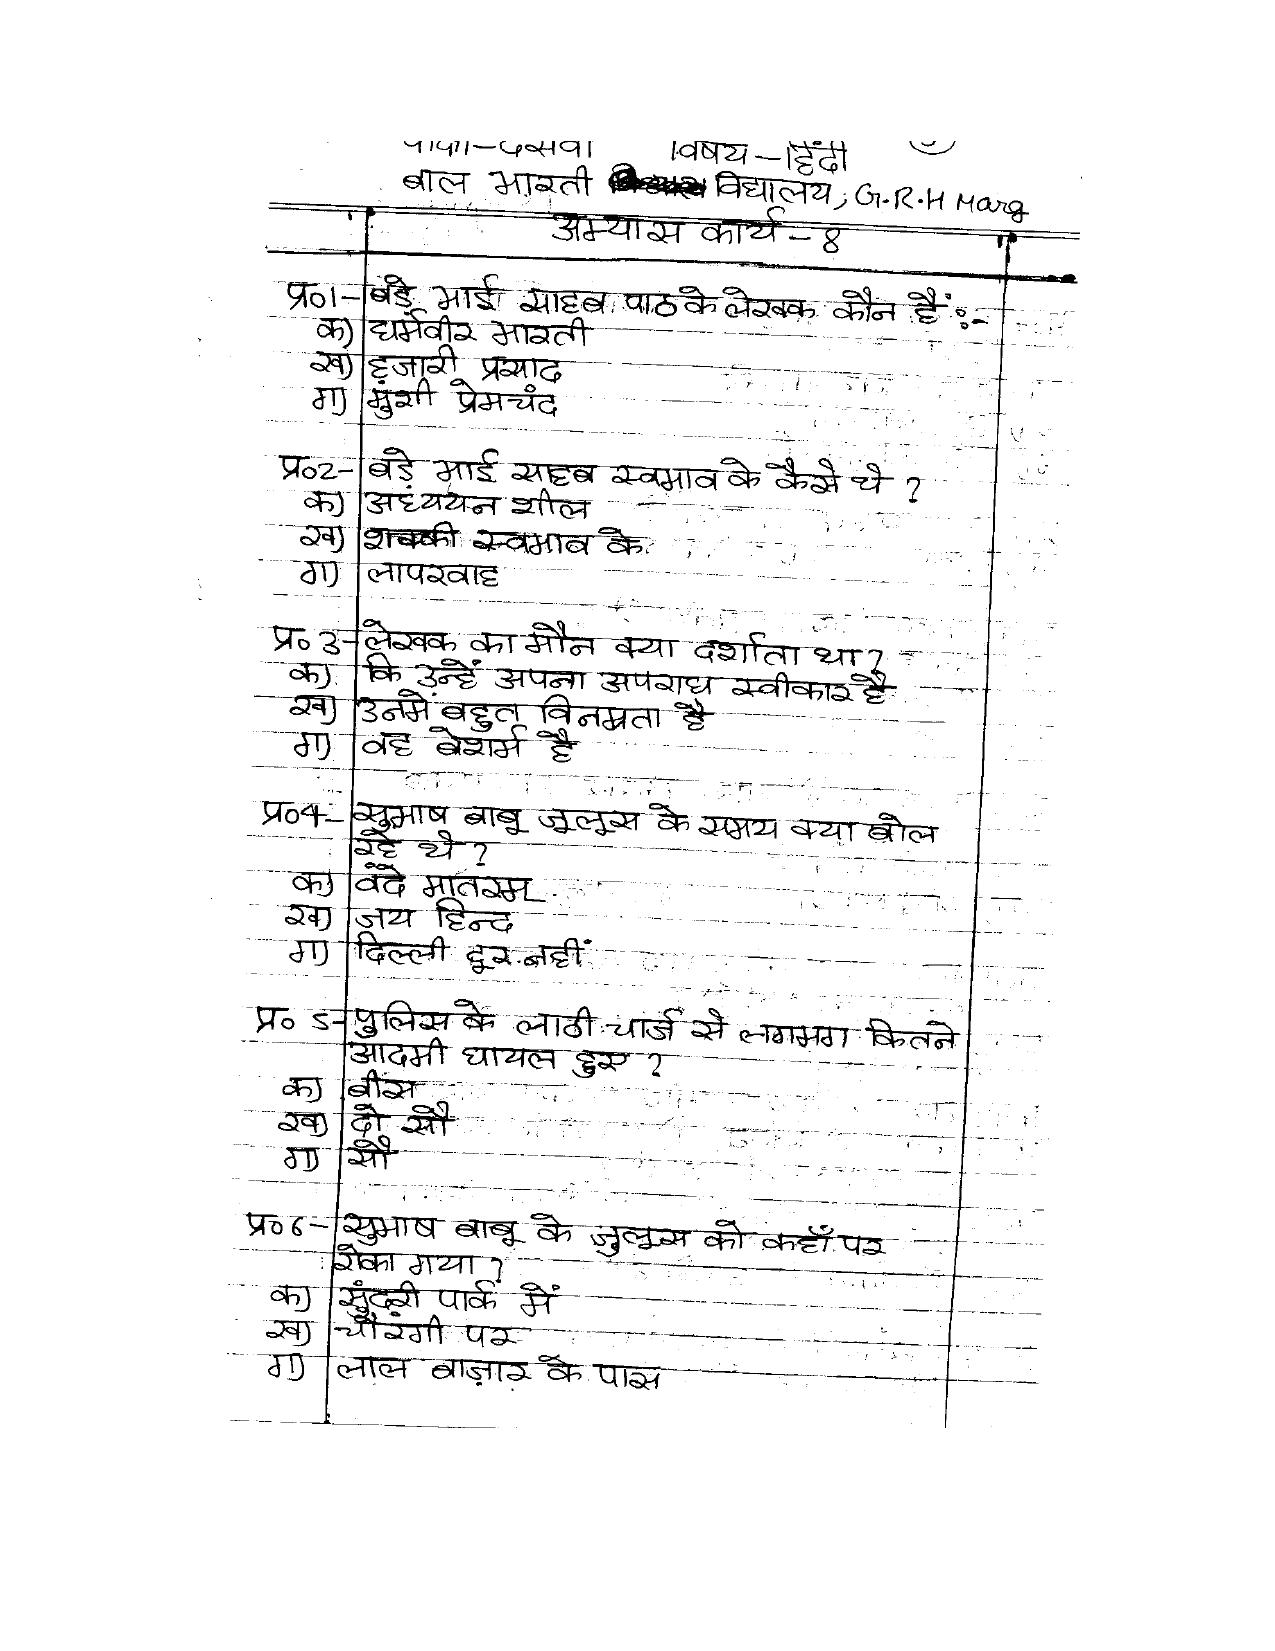 कक्षा-दसवीं विषय-हिंदी
बाल भारती विद्यालय, G.R.H Marg
अभ्यास कार्य-8
प्र०1- बड़े भाई साहब पाठ के लेखक कौन हैं :-
क) धर्मवीर भारती
ख) हजारी प्रसाद
ग) मुंशी प्रेमचंद
प्र०2- बड़े भाई साहब स्वभाव के कैसे थे ?
क) अध्ययन शील
ख) शक्की स्वभाव के
ग) लापरवाह
प्र० 3- लेखक का मौन क्या दर्शाता था ?
क) कि उन्हें अपना अपराध स्वीकार है
ख) उनमें बहुत विनम्रता है
ग) वह बेशर्म है
प्र०4- सुभाष बाबू जूलूस के समय क्या बोल
रहे थे ?
क) वंदे मातरम्
ख) जय हिन्द
ग) दिल्ली दूर नहीं
प्र० 5- पुलिस के लाठी चार्ज से लगभग कितने
आदमी घायल हुए ?
क) बीस
ख) दो सौ
ग) सौ
प्र०6- सुभाष बाबू के जुलूस को कहाँ पर
रोका गया ?
क) सुंदरी पार्क में
ख) चौरंगी पर
ग) लाल बाज़ार के पास